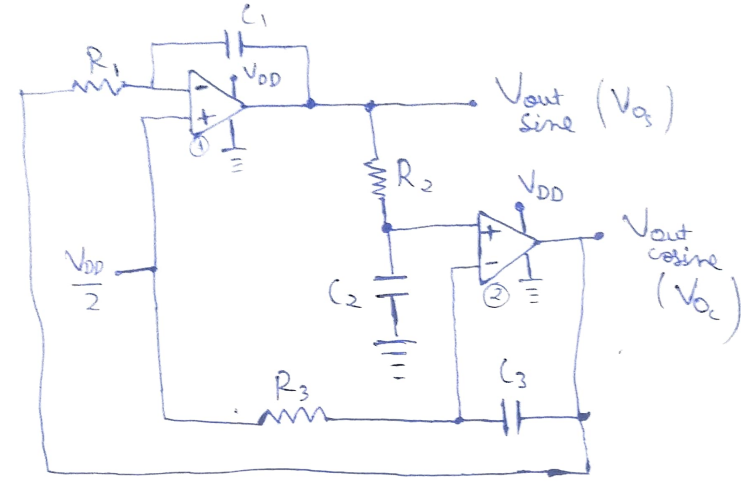 C1
R1
VDD
-
+
1
Vout
sine (Vos)
R2
VDD
+
-
2
Vout
cosine
(Voc)
VDD
2
C2
R3
C3